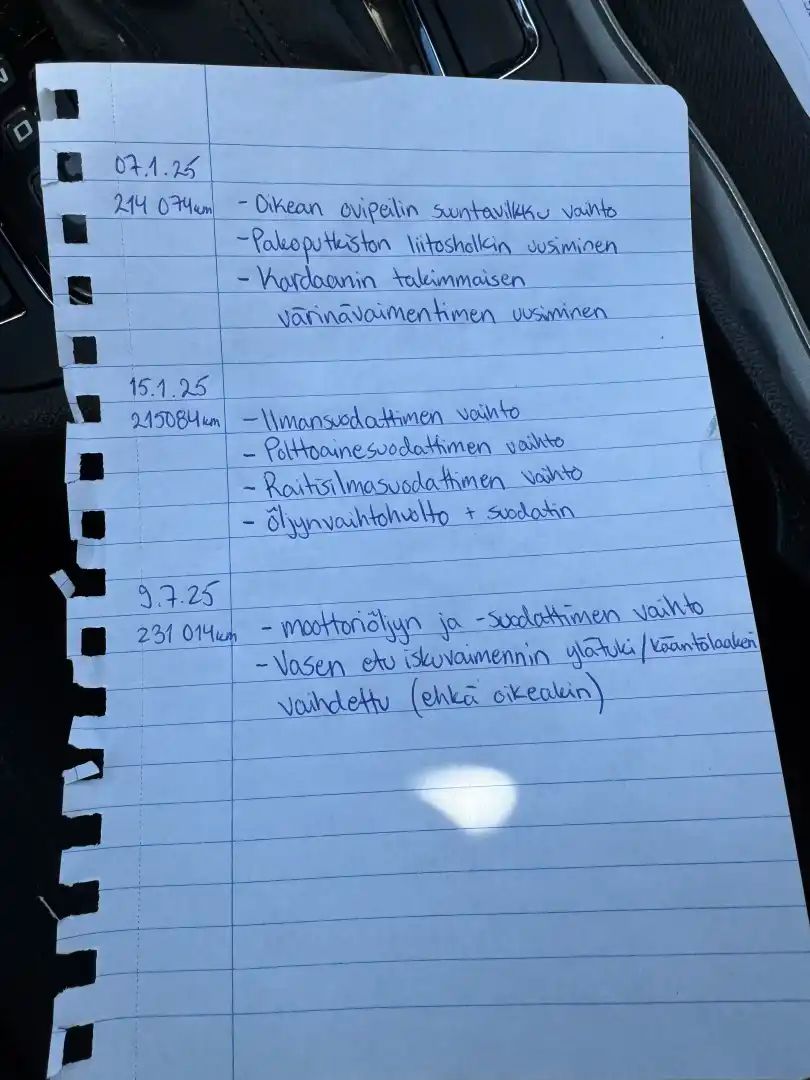 07.1.25
214 074km - Oikean ovipeilin suuntavilkku vaihto
- Pakoputkiston liitosholkin uusiminen
- Kardaanin takimmaisen
värinävaimentimen uusiminen
15.1.25
215084km - Ilmansuodattimen vaihto
- Polttoainesuodattimen vaihto
- Raitisilmasuodattimen vaihto
- öljynvaihtohuolto + suodatin
9.7.25
231 014km - moottoriöljyn ja -suodattimen vaihto
- Vasen etu iskuvaimennin ylätuki/kääntölaakeri
vaihdettu (ehkä oikeakin)